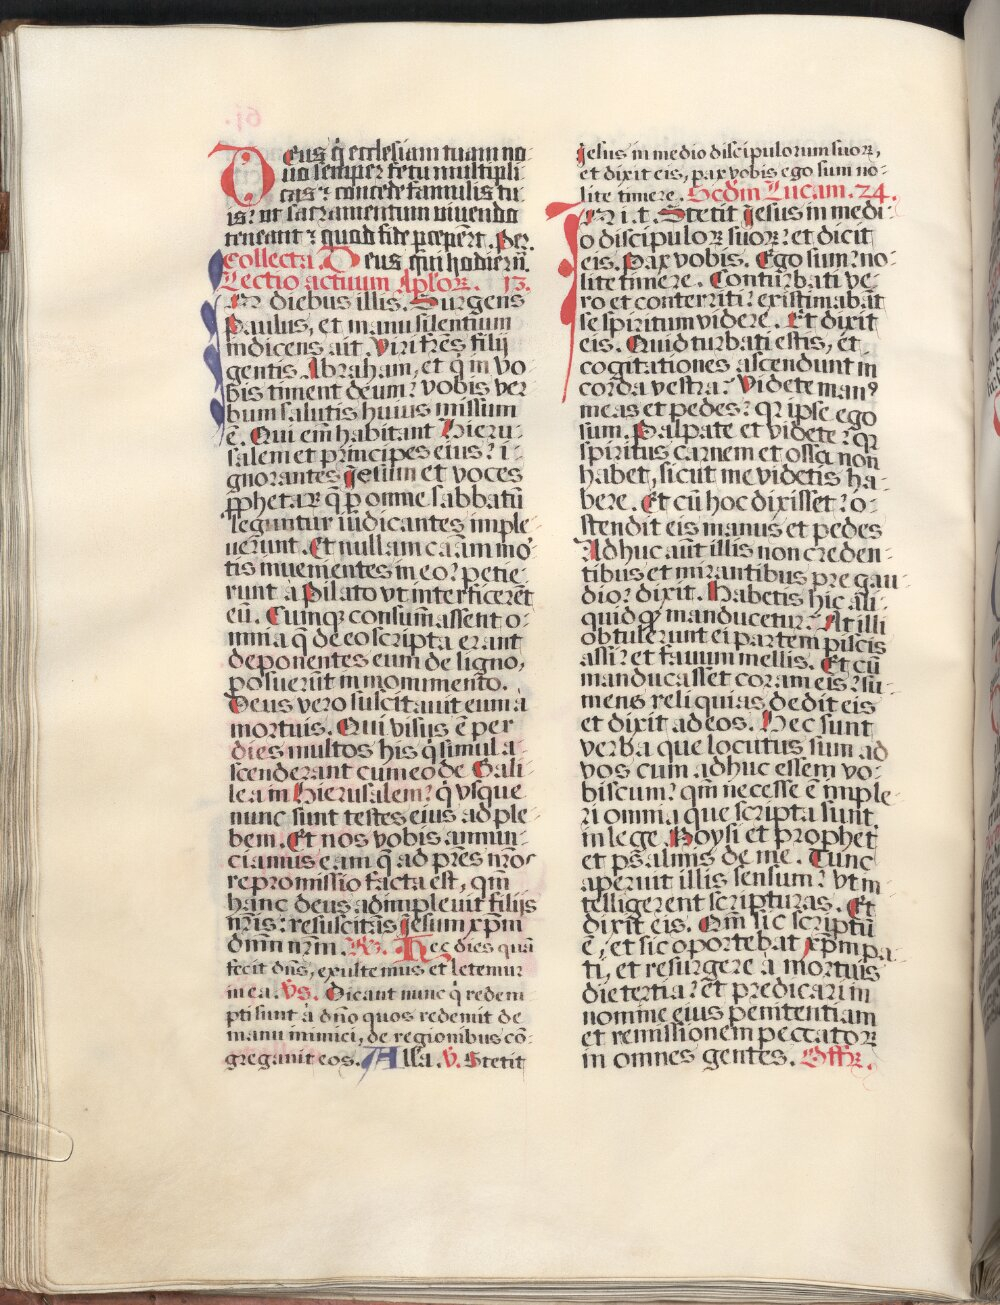 Deus q̄ ecclesiam tuam no-
uo semper fetu multipli-
cas: concede famulis tu-
is: ut sacramentum uiuendo
teneant: quod fide ꝑceper̄t. Per.
Collecta. Deus qui hodierñ.
Lectio actuum Aplōꝝ. 13.
In diebus illis. Surgens
Paulus, et manu silentium
indicens ait. Viri fr̄es filij
gentis Abraham, et q̄ in vo-
bis timent deum: vobis ver-
bum salutis huius missum
ē. Qui em̄ habitant Hieru-
salem et principes eius: i-
gnorantes Jesum et voces
ꝓphetaꝝ q̄ ꝑ omne sabbatū
leguntur iudicantes imple-
uerunt. Et nullam caām mor-
tis inuenientes in eo: petie-
runt à Pilato vt interficerēt
eū. Cumqꝫ consum̄assent o-
mnia q̄ de eo scripta erant
deponentes eum de ligno,
posuerūt in monumento.
Deus vero suscitauit eum à
mortuis. Qui visus ē per
dies multos his q̄ simul a-
scenderant cum eo de Gali-
lea in Hierusalem: q̄ vsque
nunc sunt testes eius ad ple-
bem. Et nos vobis annun-
ciamus eam q̄ ad pr̄es nr̄os
repromissio facta est, qm̄
hanc deus adimpleuit filijs
nr̄is: resuscitās Jesum xp̄m
dn̄m nr̄m. R̄. Hec dies quā
fecit dn̄s, exultemus et letemur
in ea. v̄s. Dicant nunc q̄ redem-
pti sunt à dn̄o quos redemit de
manu inimici, de regionibus cō-
gregauit eos. Alla. v̄. Stetit
Jesus in medio discipulorum suoꝝ,
et dixit eis, pax vobis ego sum no-
lite timere. Scd̄m Lucam. 24.
In i. t. Stetit Jesus in medi-
o discipuloꝝ suoꝝ: et dicit
eis. Pax vobis. Ego sum: no-
lite timere. Conturbati ve-
ro et conterriti: existimabāt
se spiritum videre. Et dixit
eis. Quid turbati estis, et
cogitationes ascendunt in
corda vestra? Videte man⁹
meas et pedes: qꝛ ipse ego
sum. Palpate et videte: qꝛ
spiritus carnem et ossa non
habet, sicut me videtis ha-
bere. Et cū hoc dixisset: o-
stendit eis manus et pedes
Adhuc aūt illis non creden-
tibus et mirantibus pre gau-
dio: dixit. Habetis hic ali-
quid qꝫ manducetur? At illi
obtulerunt ei partem piscis
assi: et fauum mellis. Et cū
manducasset coram eis: su-
mens reliquias dedit eis
et dixit ad eos. Hec sunt
verba que locutus sum ad
vos cum adhuc essem vo-
biscum: qm̄ necesse ē imple-
ri omnia que scripta sunt
in lege Moysi et prophet
et psalmis de me. Tunc
aperuit illis sensum: vt in-
telligerent scripturas. Et
dixit eis. Qm̄ sic scriptū
ē, et sic oportebat xp̄m pa-
ti, et resurgere à mortuis
die tertia: et predicari in
nomine eius penitentiam
et remissionem peccatoꝝ
in omnes gentes. Offꝝ.